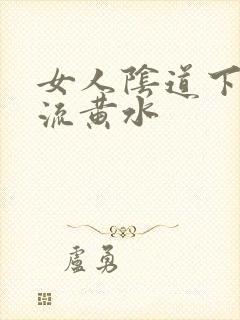 女人陰道下
流黄水
盧勇